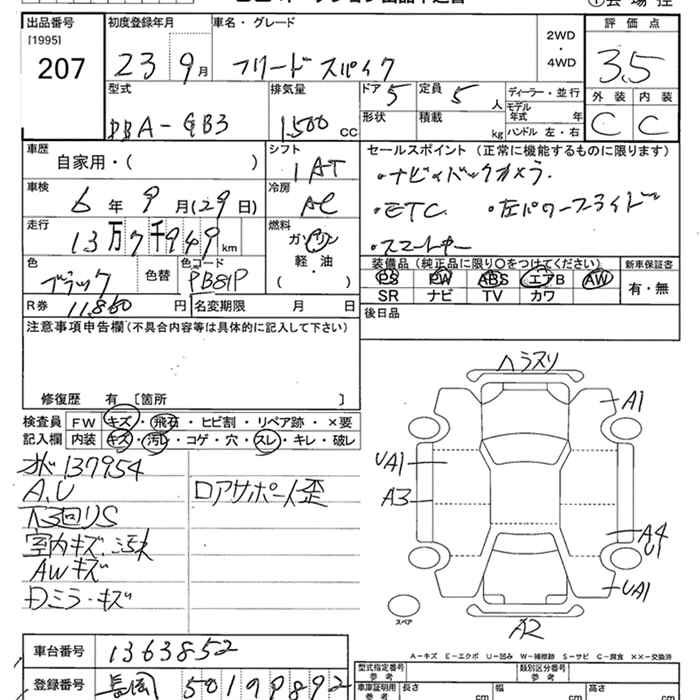 出品番号
[1995]
207
初度登録年月
23 9月
車名・グレード
フリードスパイク
2WD
・
4WD
評価点
3.5
外装 内装
C C
型式
DBA-GB3
排気量
1500 CC
ドア 5
定員 5 人
形状
積載 kg
ディーラー・並行
モデル年式 年
ハンドル 左・右
車歴
自家用・( )
シフト
1 AT
車検
6年 9月(29日)
冷房
AC
走行
13万7千949 km
燃料
ガソリン
軽・油
( )
色
ブラック
色替
色コード
PB81P
R券 11,860円
名変期限 月 日
セールスポイント (正常に機能するものに限ります)
・ナビ・バックカメラ
・ETC ・左パワースライド
・スマートキー
装備品(純正品に限り〇をつけてください)
新車保証書
PS PW ABS エアB AW
有・無
SR ナビ TV カワ
後日品
注意事項申告欄(不具合内容等は具体的に記入して下さい)
修復歴 有 [箇所 ]
検査員
記入欄
FW キズ・飛石・ヒビ割・リペア跡・×要
内装 キズ・汚レ・コゲ・穴・スレ・キレ・破レ
137954
A,U
下回りS
室内キズ、汚れ
AWキズ
Dミラーキズ
ロアサポート歪
ヘラスリ
A1
UA1
A3
A4
U1
UA1
A2
スペア
A-キズ E-エクボ U-凹み W-補修跡 S-サビ C-腐食 ××-交換済
車台番号 1363852
登録番号 長岡 501 9892
型式指定番号
参考
類別区分番号
参考
車庫証明用
参考
長さ cm
幅 cm
高さ cm